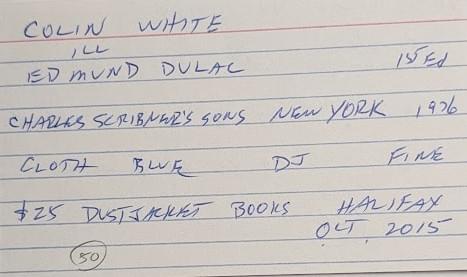 COLIN WHITE
ILL
EDMUND DULAC 1st Ed
CHARLES SCRIBNER'S SONS NEW YORK 1976
CLOTH BLUE DJ FINE
$25 DUSTJACKET BOOKS HALIFAX
OCT. 2015
50